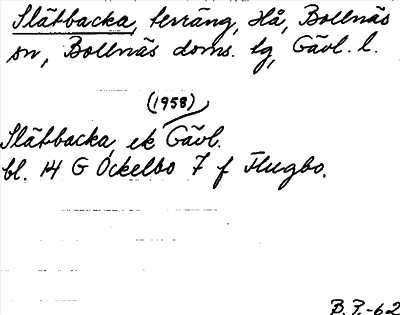 Slätbacka, terräng, Hå, Bollnäs
sn, Bollnäs doms. lg, Gävl. l.
(1958)
Slätbacka ek Gävl.
bl. 14 G Ockelbo 7 f Flugbo.
B.P.-62